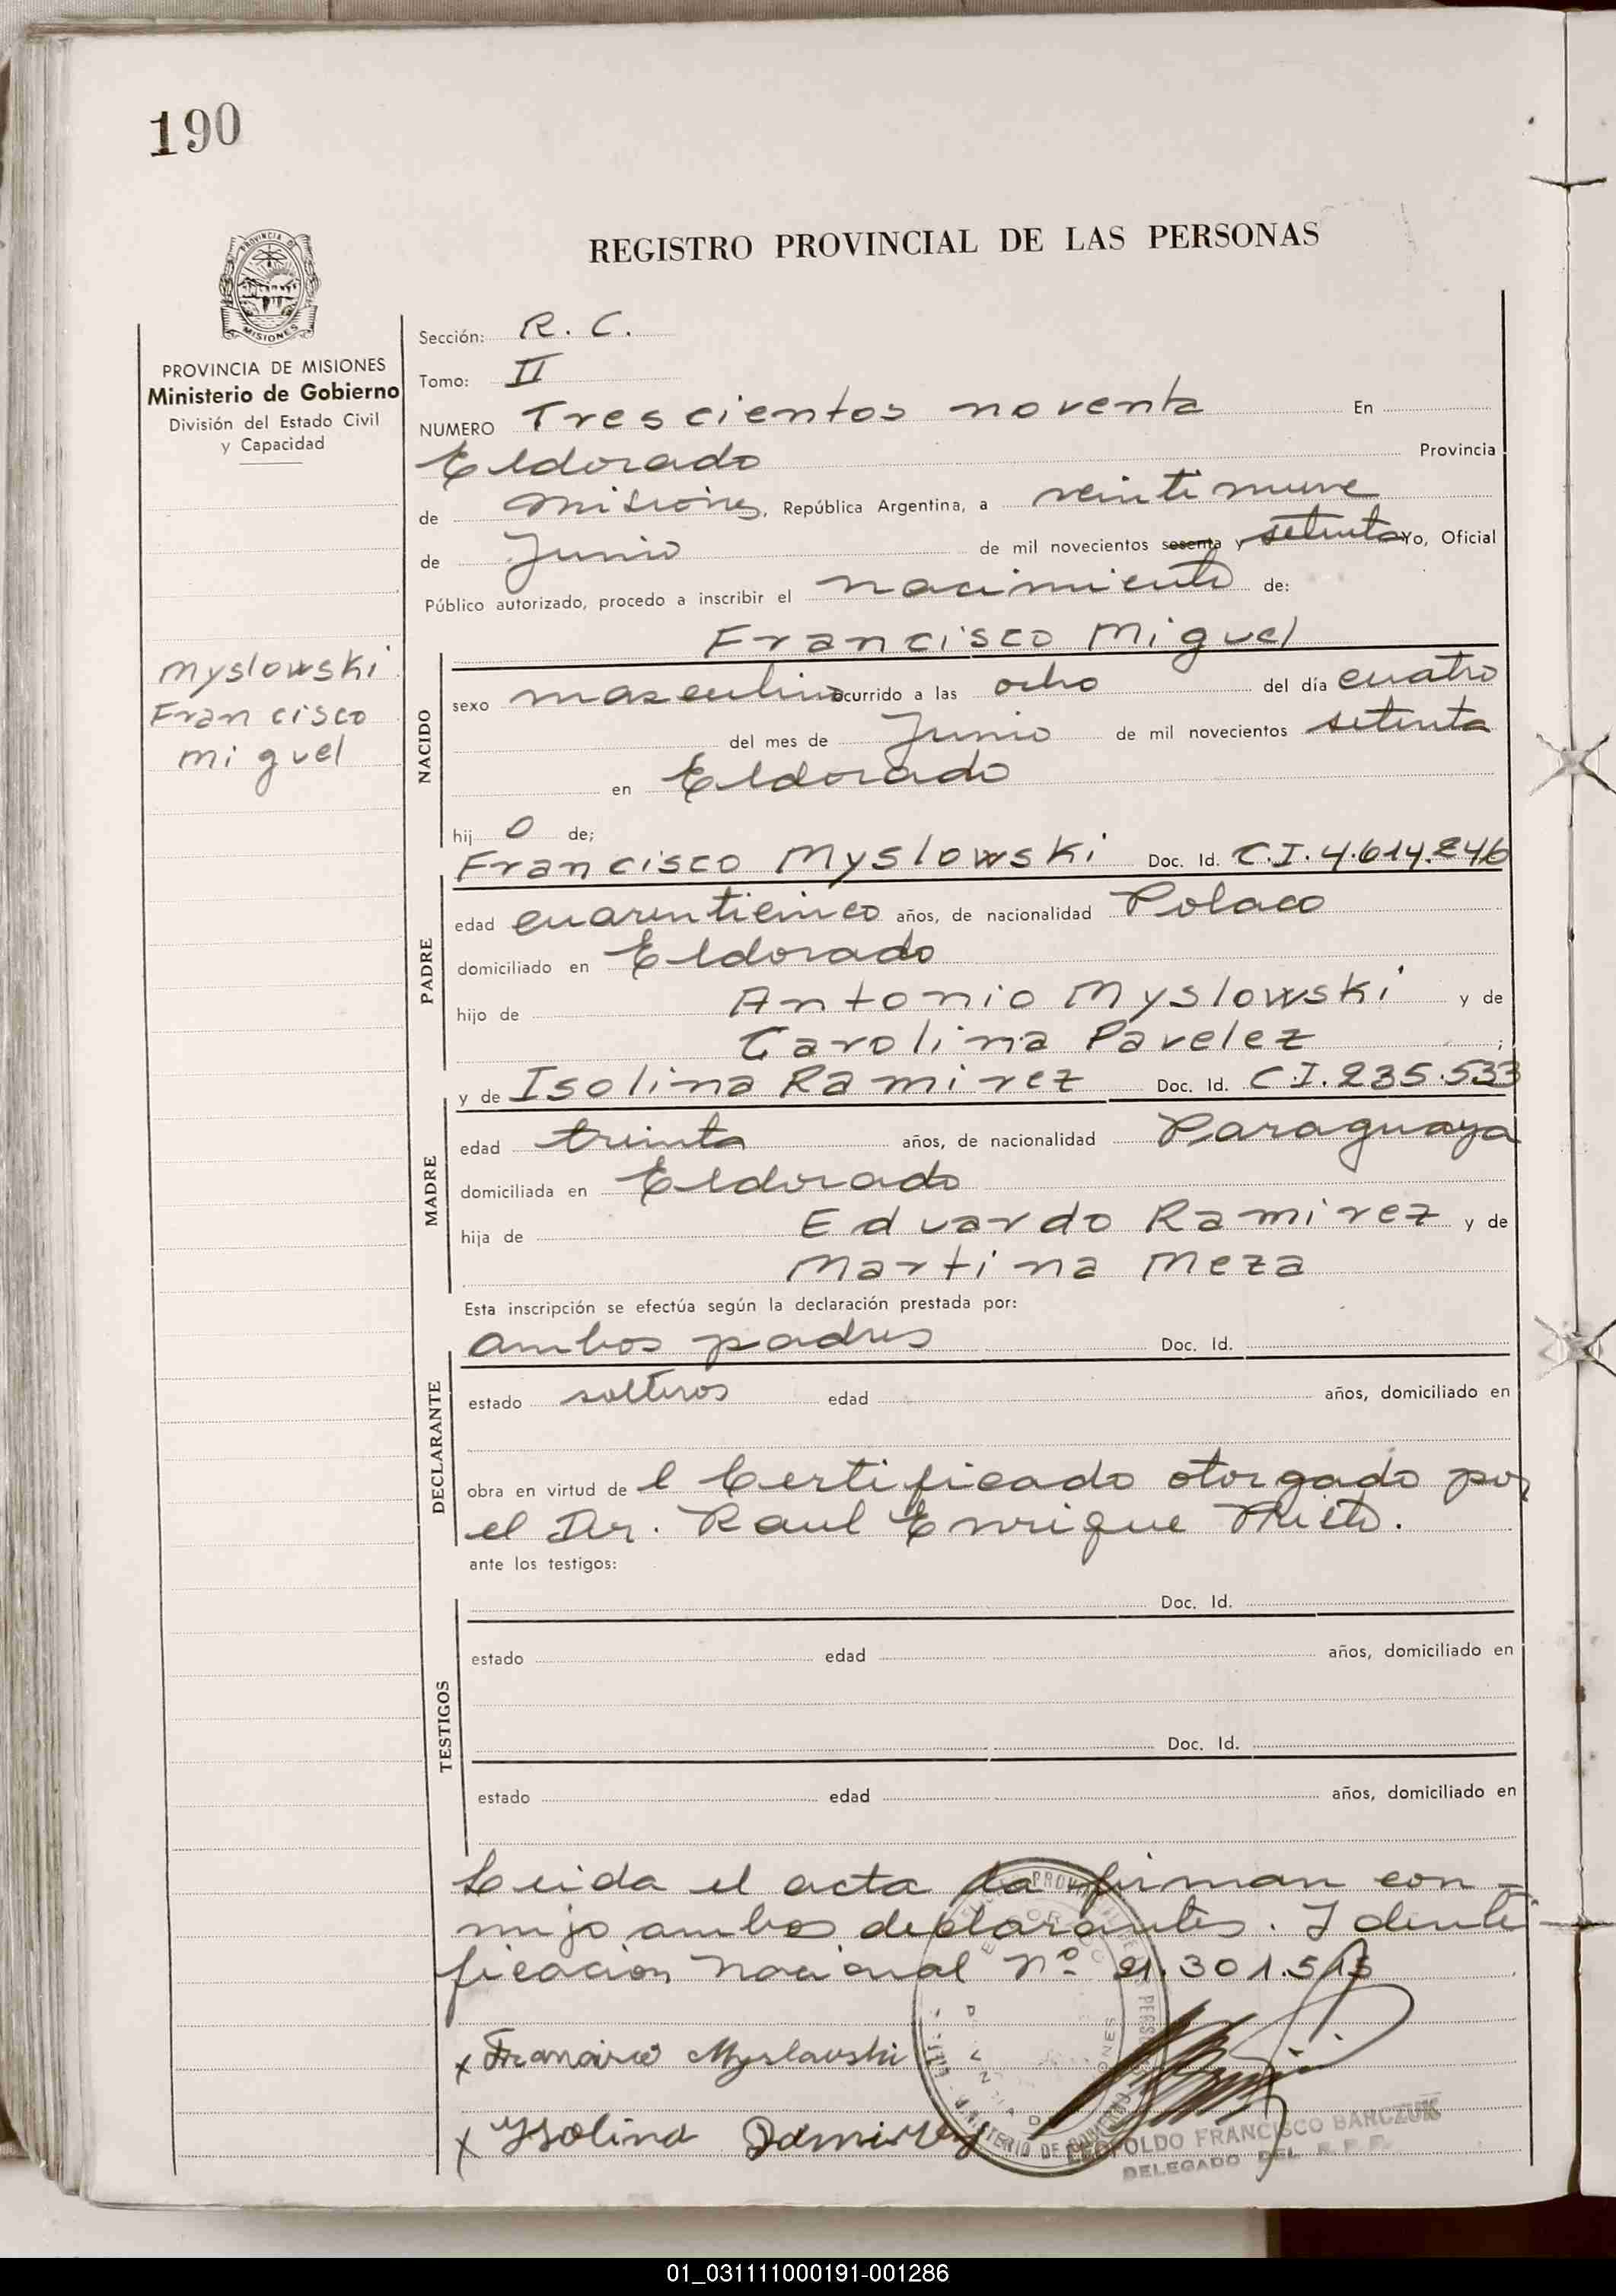 190
REGISTRO PROVINCIAL DE LAS PERSONAS
PROVINCIA DE
MISIONES
PROVINCIA DE MISIONES
Ministerio de Gobierno
División del Estado Civil
y Capacidad
Myslowski
Francisco
Miguel
Sección: R. C.
Tomo: II
NUMERO Trescientos noventa En
Eldorado Provincia
de Misiones, República Argentina, a veintinueve
de Junio de mil novecientos sesenta y setenta Yo, Oficial
Público autorizado, procedo a inscribir el nacimiento de:
Francisco Miguel
NACIDO
sexo masculino ocurrido a las ocho del día cuatro
del mes de Junio de mil novecientos setenta
en Eldorado
hij o de;
Francisco Myslowski Doc. Id. C.I. 4.614.246
PADRE
edad cuarenticinco años, de nacionalidad Polaco
domiciliado en Eldorado
hijo de Antonio Myslowski y de
Carolina Pavelez ;
y de Isolina Ramirez Doc. Id. C.I. 235.533
MADRE
edad treinta años, de nacionalidad Paraguaya
domiciliada en Eldorado
hija de Eduardo Ramirez y de
Martina Meza
Esta inscripción se efectúa según la declaración prestada por:
ambos padres Doc. Id.
DECLARANTE
estado solteros edad años, domiciliado en
obra en virtud de l Certificado otorgado por
el Dr. Raul Enrique
ante los testigos:
Doc. Id.
TESTIGOS
estado edad años, domiciliado en
Doc. Id.
estado edad años, domiciliado en
Leida el acta la firman con-
migo ambos declarantes. Identi
ficacion Nacional Nº 21.301.513
x Francisco Myslowski
x Ysolina Ramirez
LEOPOLDO FRANCISCO BARCZUK
DELEGADO DEL R.P.P.
01_031111000191-001286